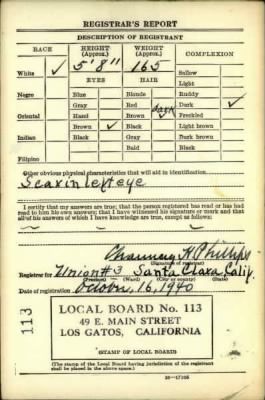 REGISTRAR'S REPORT
DESCRIPTION OF REGISTRANT
RACE HEIGHT (Approx.) WEIGHT (Approx.) COMPLEXION
White ✓ 5' 8" 165 Sallow
EYES HAIR Light
Negro Blue Blonde Ruddy
Gray Red Dark ✓
Oriental Hazel Brown Dark Freckled
Brown ✓ Black Light brown
Indian Black Gray Dark brown
Bald Black
Filipino
Other obvious physical characteristics that will aid in identification
Scar in left eye
I certify that my answers are true; that the person registered has read or has had
read to him his own answers; that I have witnessed his signature or mark and that
all of his answers of which I have knowledge are true, except as follows:
Chauncey H Phillips
(Signature of registrar)
Registrar for Union #3 Santa Clara Calif.
(Precinct) (Ward) (City or county) (State)
Date of registration October, 16, 1940
113
LOCAL BOARD No. 113
49 E. MAIN STREET
LOS GATOS, CALIFORNIA
(STAMP OF LOCAL BOARD)
(The stamp of the Local Board having jurisdiction of the registrant
shall be placed in the above space.)